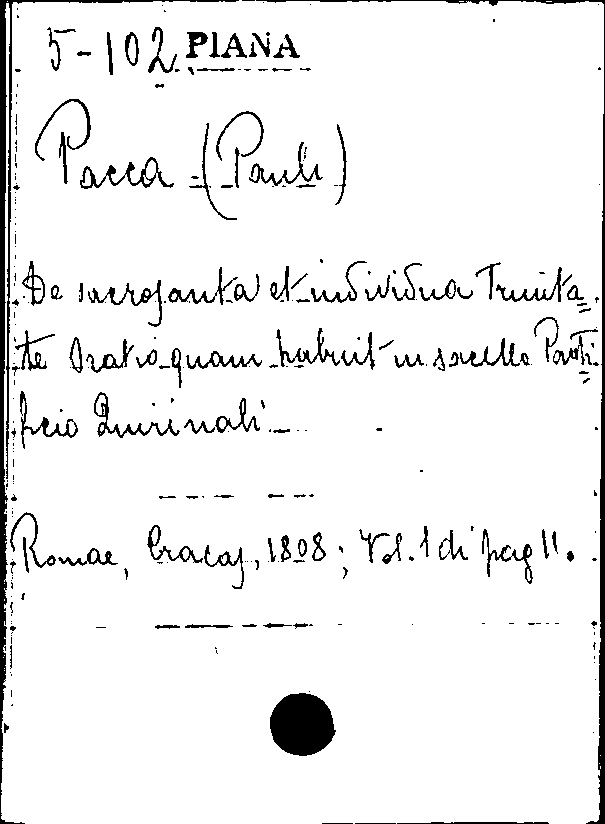 5-102 PIANA
Pacca (Pauli)
De sacrosanta et individua Trinita=
te Oratio quam habuit in sacello Ponti=
ficio Quirinali
Romae, Cracas, 1808; Vol. 1 di pag 11.